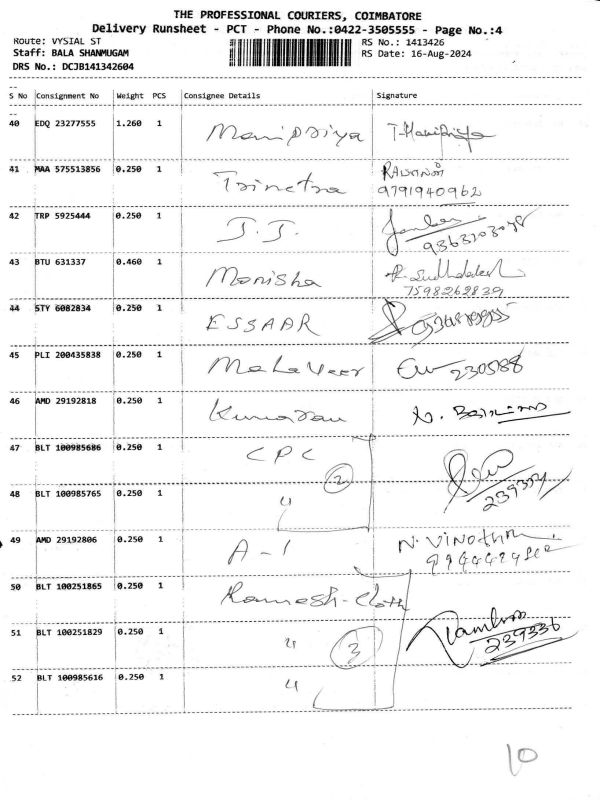 THE PROFESSIONAL COURIERS, COIMBATORE
Delivery Runsheet - PCT - Phone No.:0422-3505555 - Page No.:4
Route: VYSIAL ST RS No.: 1413426
Staff: BALA SHANMUGAM RS Date: 16-Aug-2024
DRS No.: DCJB141342604
--
S No Consignment No Weight PCS Consignee Details Signature
--
40 EDQ 23277555 1.260 1 Manipriya T-Manipriya
41 MAA 575513856 0.250 1 Trinetra
9791940962
42 TRP 5925444 0.250 1 J.J.
43 BTU 631337 0.460 1 Monisha
7598262839
44 STY 6082834 0.250 1 ESSAAR
45 PLI 200435838 0.250 1 Mahaveer 230588
46 AMD 29192818 0.250 1 Kumaran
47 BLT 100985686 0.250 1 CPC
2
48 BLT 100985765 0.250 1 "
49 AMD 29192806 0.250 1 A-1 N. VINOTHINI
50 BLT 100251865 0.250 1 Ramesh-Cloth
51 BLT 100251829 0.250 1 " 3 239336
52 BLT 100985616 0.250 1 "
10